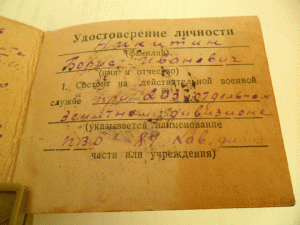 Удостоверение личности
Никитин
(фамилия)
Борис Иванович
(имя и отчество)
1. Состоит на действительной военной
службе при 203 отдельном
зенитном дивизионе
(указывается наименование
ПВО 89 Кав. див
части или учреждения)